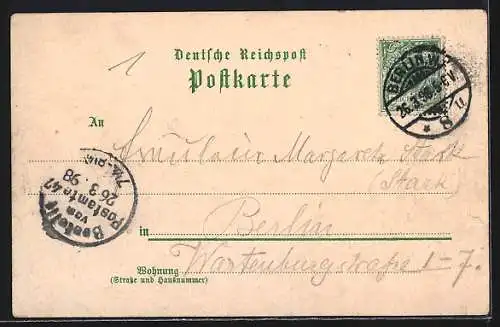 1
Deutsche Reichspost
Postkarte
BERLIN.W.
26.3.98.
8 u
An
Fräulein Margarete Stark
(Stark)
Bestellt
vom
Postamte 47
26 3. 98
in Berlin
Wohnung Wartenburgstrasse 1-7.
(Straße und Hausnummer)